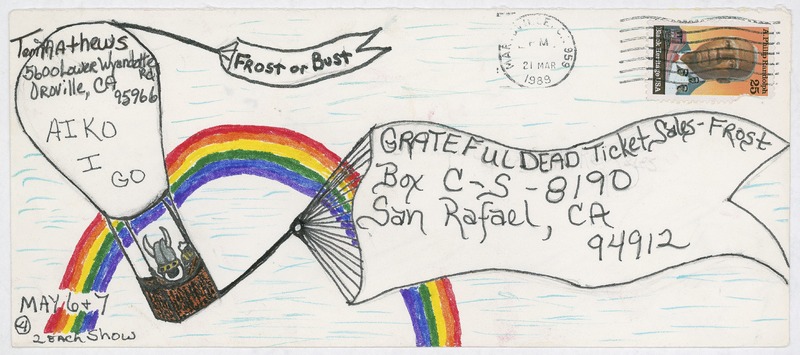 Terri Mathews
5600 Lower Wyandotte
Rd.
Oroville, CA
95966
AIKO
I
GO
FROST or BUST
MARYSVILLE, CA 959
PM
21 MAR
1989
A. Philip Randolph
Black Heritage USA
25
GRATEFUL DEAD Ticket Sales - FROST
Box C-S-8190
San Rafael, CA
94912
MAY 6+7
4
2 EACH SHOW